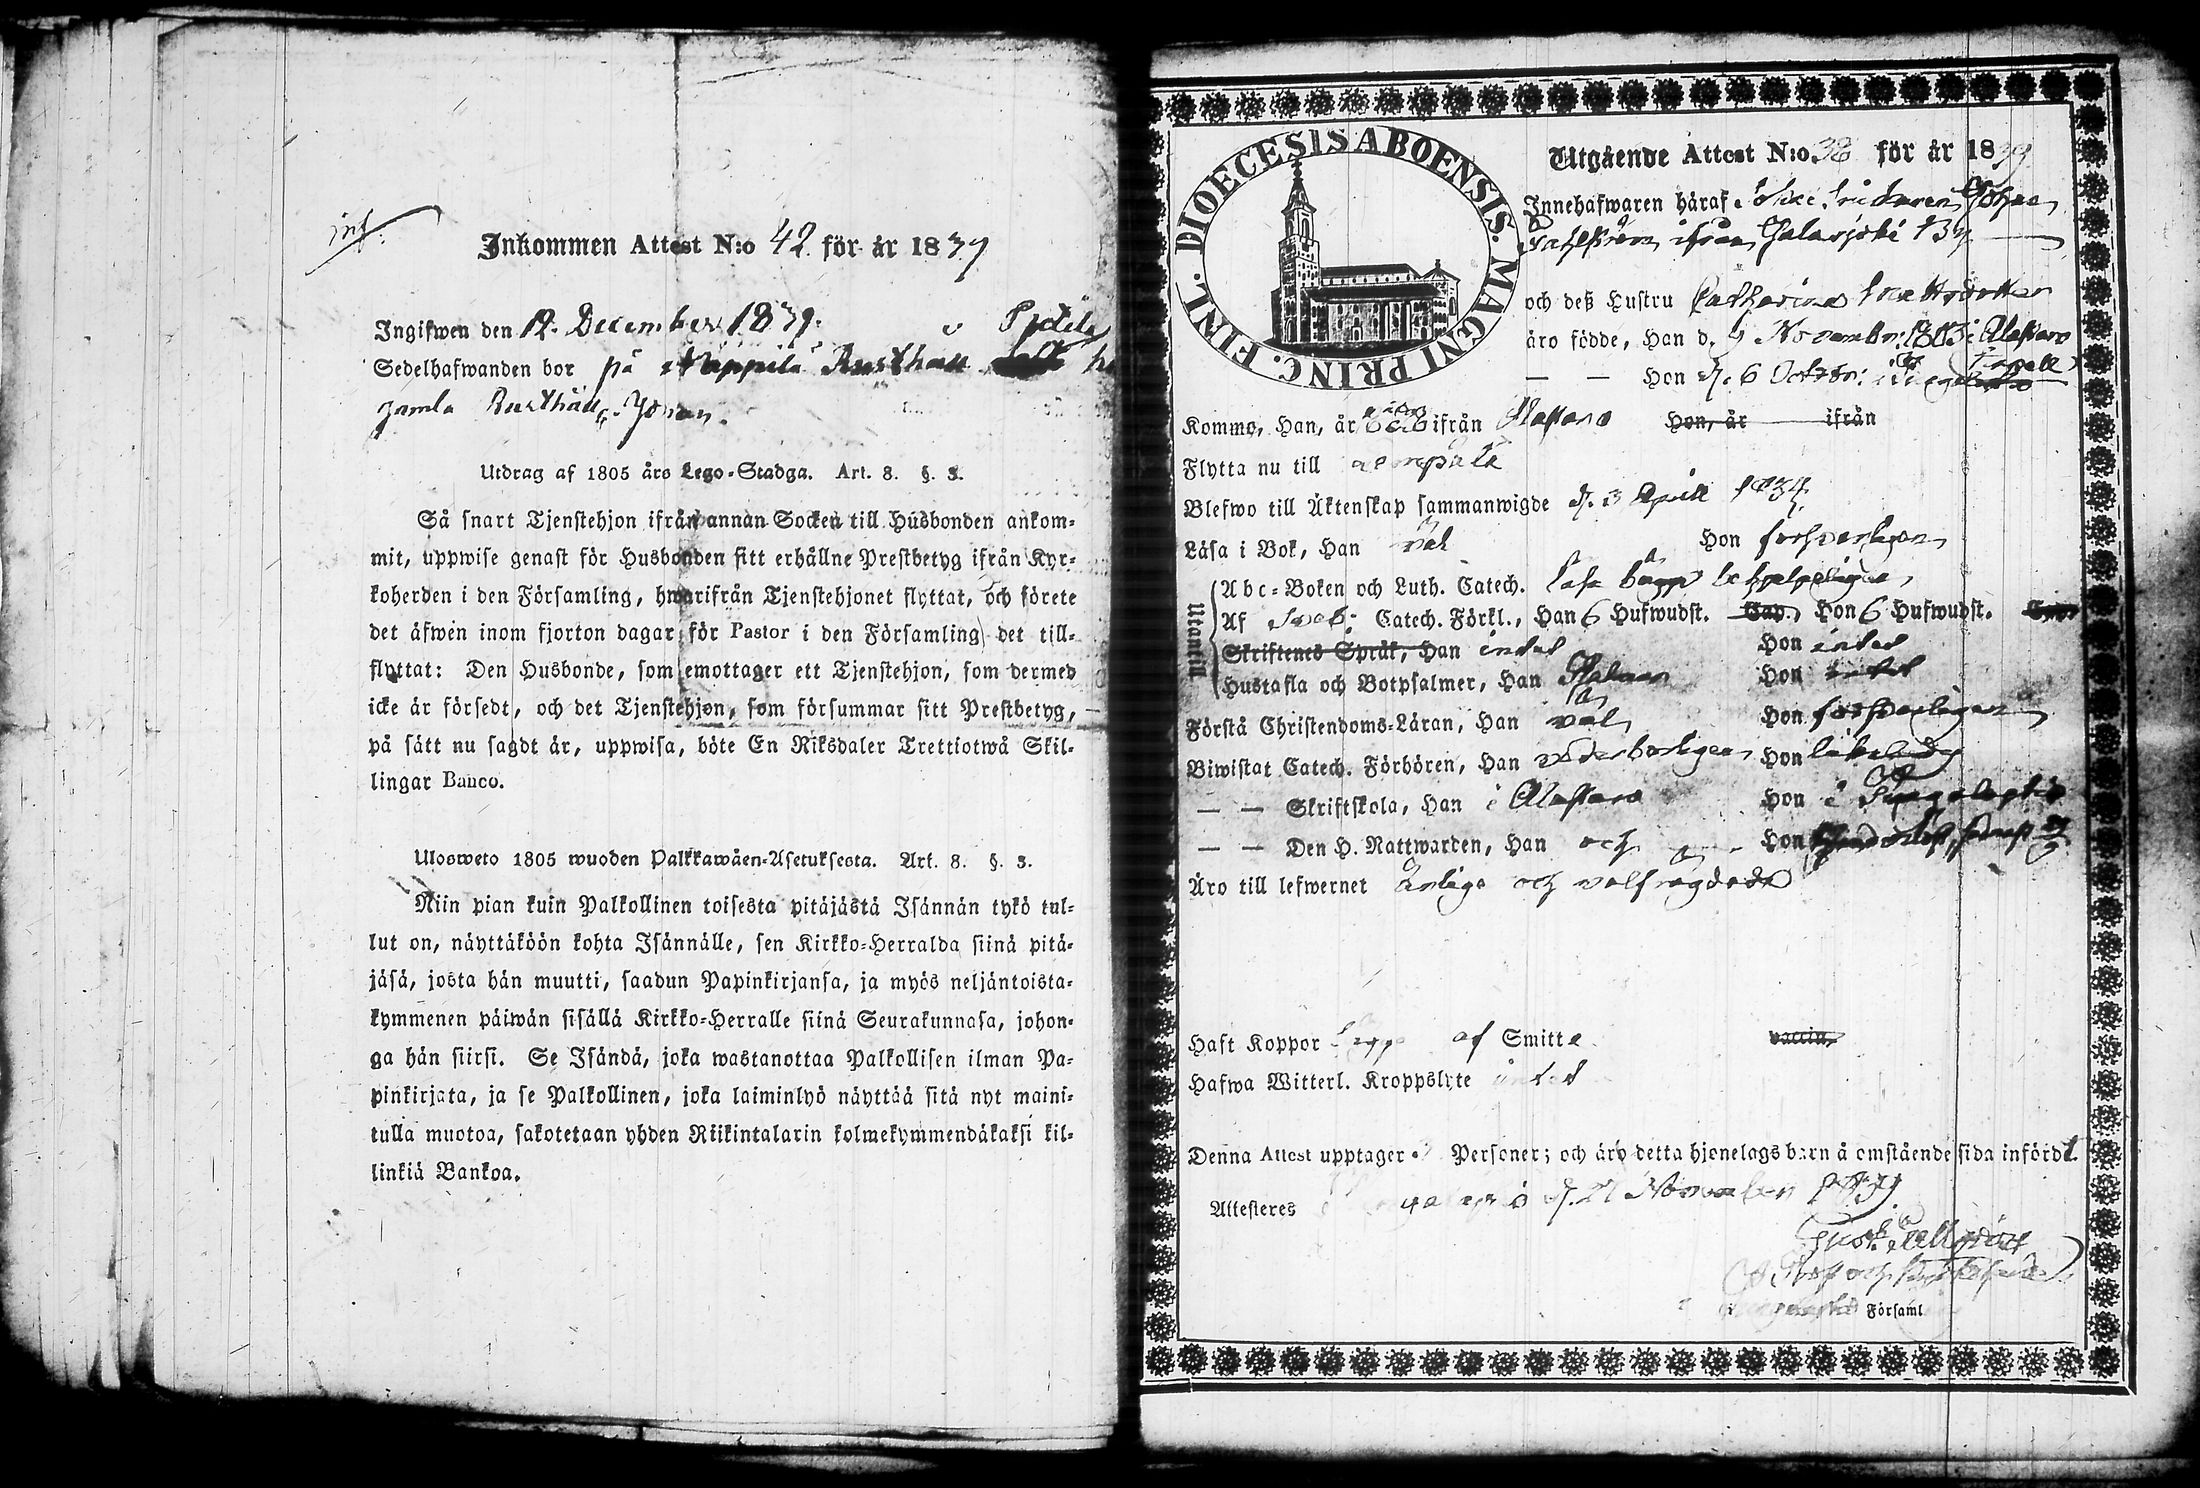 inf.
Inkommen Attest N:o 42. för år 1839
Ingifwen den 12. December 1839.
Sedelhafwanden bor på Rusthåll
gamla Johan.
Utdrag af 1805 års Lego-Stadga. Art. 8. §. 3.
Så snart Tjenstehjon ifrån annan Socken till Husbonden ankom-
mit, uppwise genast för Husbonden sitt erhållne Prestbetyg ifrån Kyr-
koherden i den Församling, hwarifrån Tjenstehjonet flyttat, och förete
det äfwen inom fjorton dagar för Pastor i den Församling det till-
flyttat: Den Husbonde, som emottager ett Tjenstehjon, som dermed
icke är försedt, och det Tjenstehjon, som försummar sitt Prestbetyg,
på sätt nu sagdt är, uppwisa, böte En Riksdaler Trettiotwå Skil-
lingar Banco.
Ulosweto 1805 wuoden Palkkawäen-Asetuksesta. Art. 8. §. 3.
Niin pian kuin Palkollinen toisesta pitäjästä Isännän tykö tul-
lut on, näyttäköön kohta Isännälle, sen Kirkko-Herralda siinä pitä-
jäsä, josta hän muutti, saadun Papinkirjansa, ja myös neljäntoista-
kymmenen päiwän sisällä Kirkko-Herralle siinä Seurakunnasa, johon-
ga hän siirsi. Se Isändä, joka wastanottaa Palkollisen ilman Pa-
pinkirjata, ja se Palkollinen, joka laiminlyö näyttää sitä nyt maini-
tulla muotoa, sakotetaan yhden Riikintalarin kolmekymmendäkaksi kil-
linkiä Bankoa.
DIOECESIS ABOENSIS. MAGNI PRINC. FINL.
Utgående Attest N:o 38 för år 1839
Innehafwaren häraf Johan
ifrån
och deß Hustru Catharina Mattsdotter
äro födde, Han d. 4 November 1803 i Alastaro
— — Hon d. 6 October
Kommo, Han, år ifrån Alastaro Hon, år ifrån
Flytta nu till
Blefwo till Äktenskap sammanwigde d. 3 April 1834
Läsa i Bok, Han väl Hon försvarligen
Utantill
Abc-Boken och Luth. Catech. läsa bägge behjelpeligen
Af Sveb. Catech. Förkl., Han 6 Hufwudst. Cap. Hon 6 Hufwudst. Cap.
Skriftenes Språk, Han intet Hon intet
Hustafla och Botpsalmer, Han Hon intet
Förstå Christendoms-Läran, Han väl Hon försvarligen
Biwistat Catech. Förhören, Han vederbörligen Hon likaledes
— — Skriftskola, Han i Alastaro Hon i
— — Den H. Nattwarden, Han och Hon
Äro till lefwernet ärlige och välfrägdade
Haft Koppor bägge af Smitta vaccin.
Hafwa Witterl. Kroppslyte intet
Denna Attest upptager Personer; och äro detta hjonelags barn å omstående sida införde.
Attesteres d. 21 November 1839
Gust.
Församl.